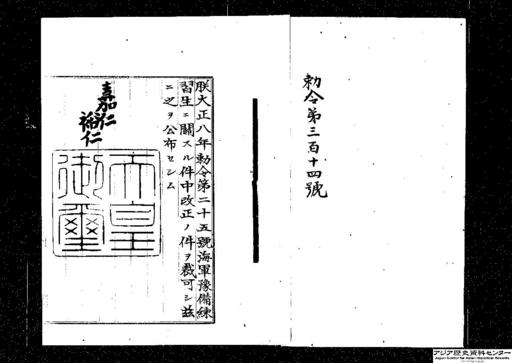 勅令第三百十四號
朕大正八年勅令第二十五號海軍豫備練
習生ニ關スル件中改正ノ件ヲ裁可シ茲
ニ之ヲ公布セシム
嘉仁
裕仁
天皇
御璽
アジア歴史資料センター
Japan Center for Asian Historical Records